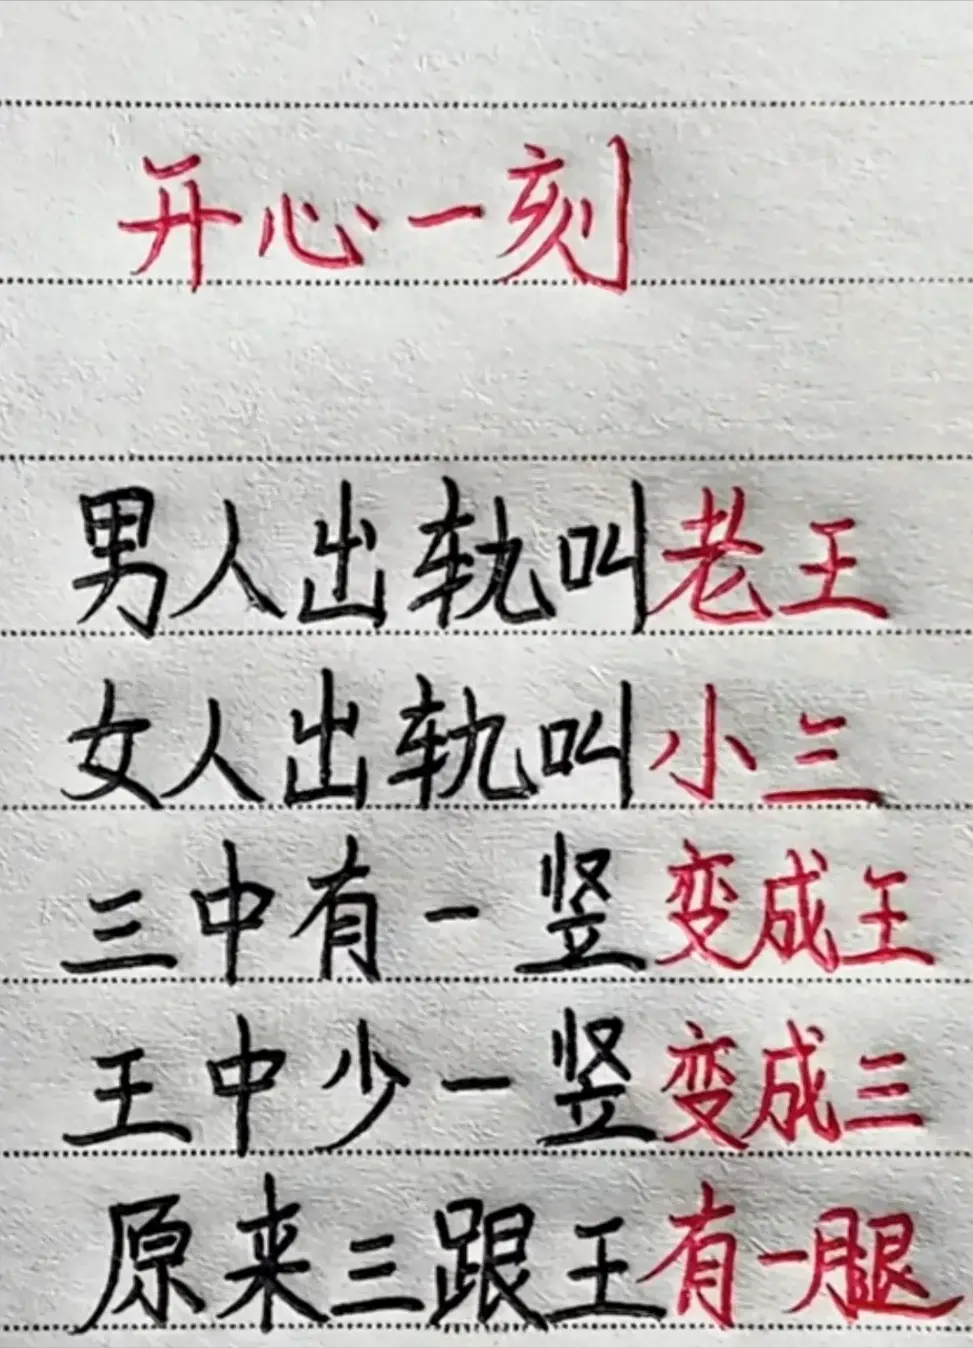 开心一刻
男人出轨叫老王
女人出轨叫小三
三中有一竖变成王
王中少一竖变成三
原来三跟王有一腿